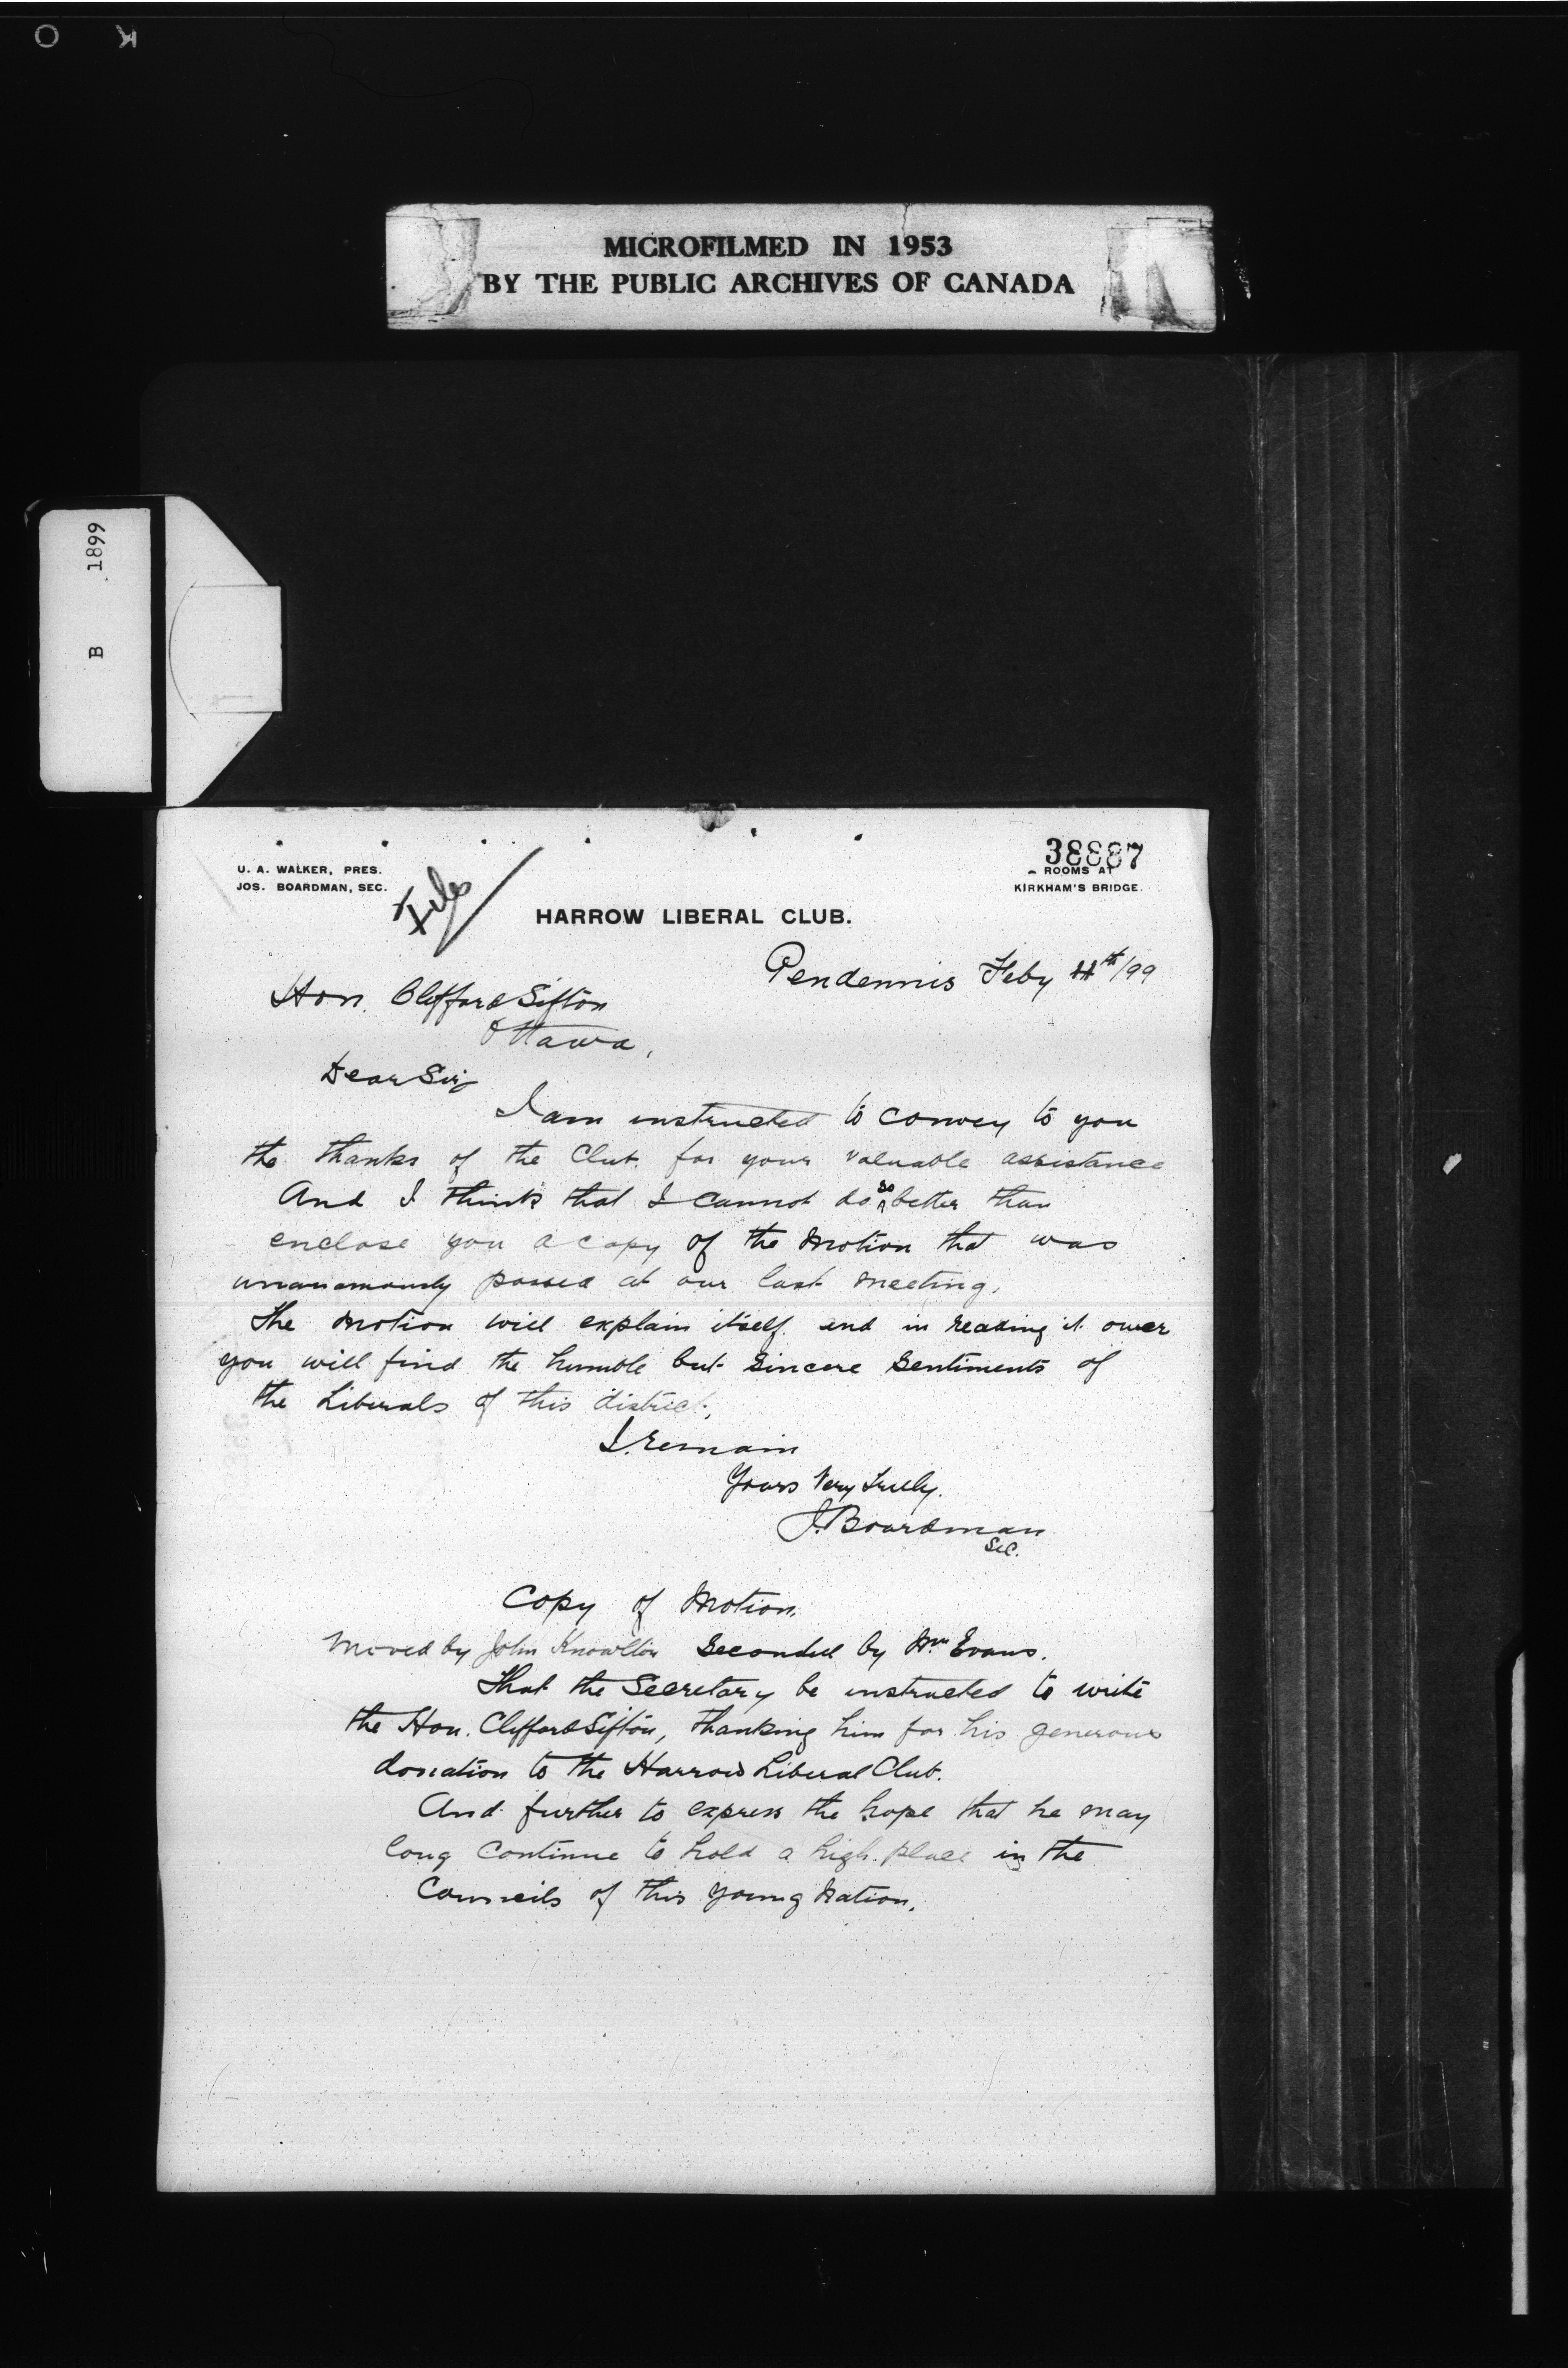 O K
MICROFILMED IN 1953
BY THE PUBLIC ARCHIVES OF CANADA
B 1899
U. A. WALKER, PRES.
JOS. BOARDMAN, SEC.
File
38887
ROOMS AT
KIRKHAM'S BRIDGE.
HARROW LIBERAL CLUB.
Pendennis Feby 11th/99
Hon. Clifford Sifton
Ottawa,
Dear Sir
I am instructed to convey to you
the thanks of the Club for your valuable assistance
And I think that I cannot do so better than
enclose you a copy of the Motion that was
unanamously passed at our last Meeting.
The Motion will explain itself and in reading it over
you will find the humble but Sincere Sentiments of
the Liberals of this district,
I remain
Yours Very Truly.
J. Boardman
Sec.
Copy of Motion.
Moved by John Knowlton Seconded by Wm Evans.
That the Secretary be instructed to write
the Hon. Clifford Sifton, thanking him for his generous
donation to the Harrow Liberal Club.
And further to express the hope that he may
long continue to hold a high place in the
Councils of this young Nation.